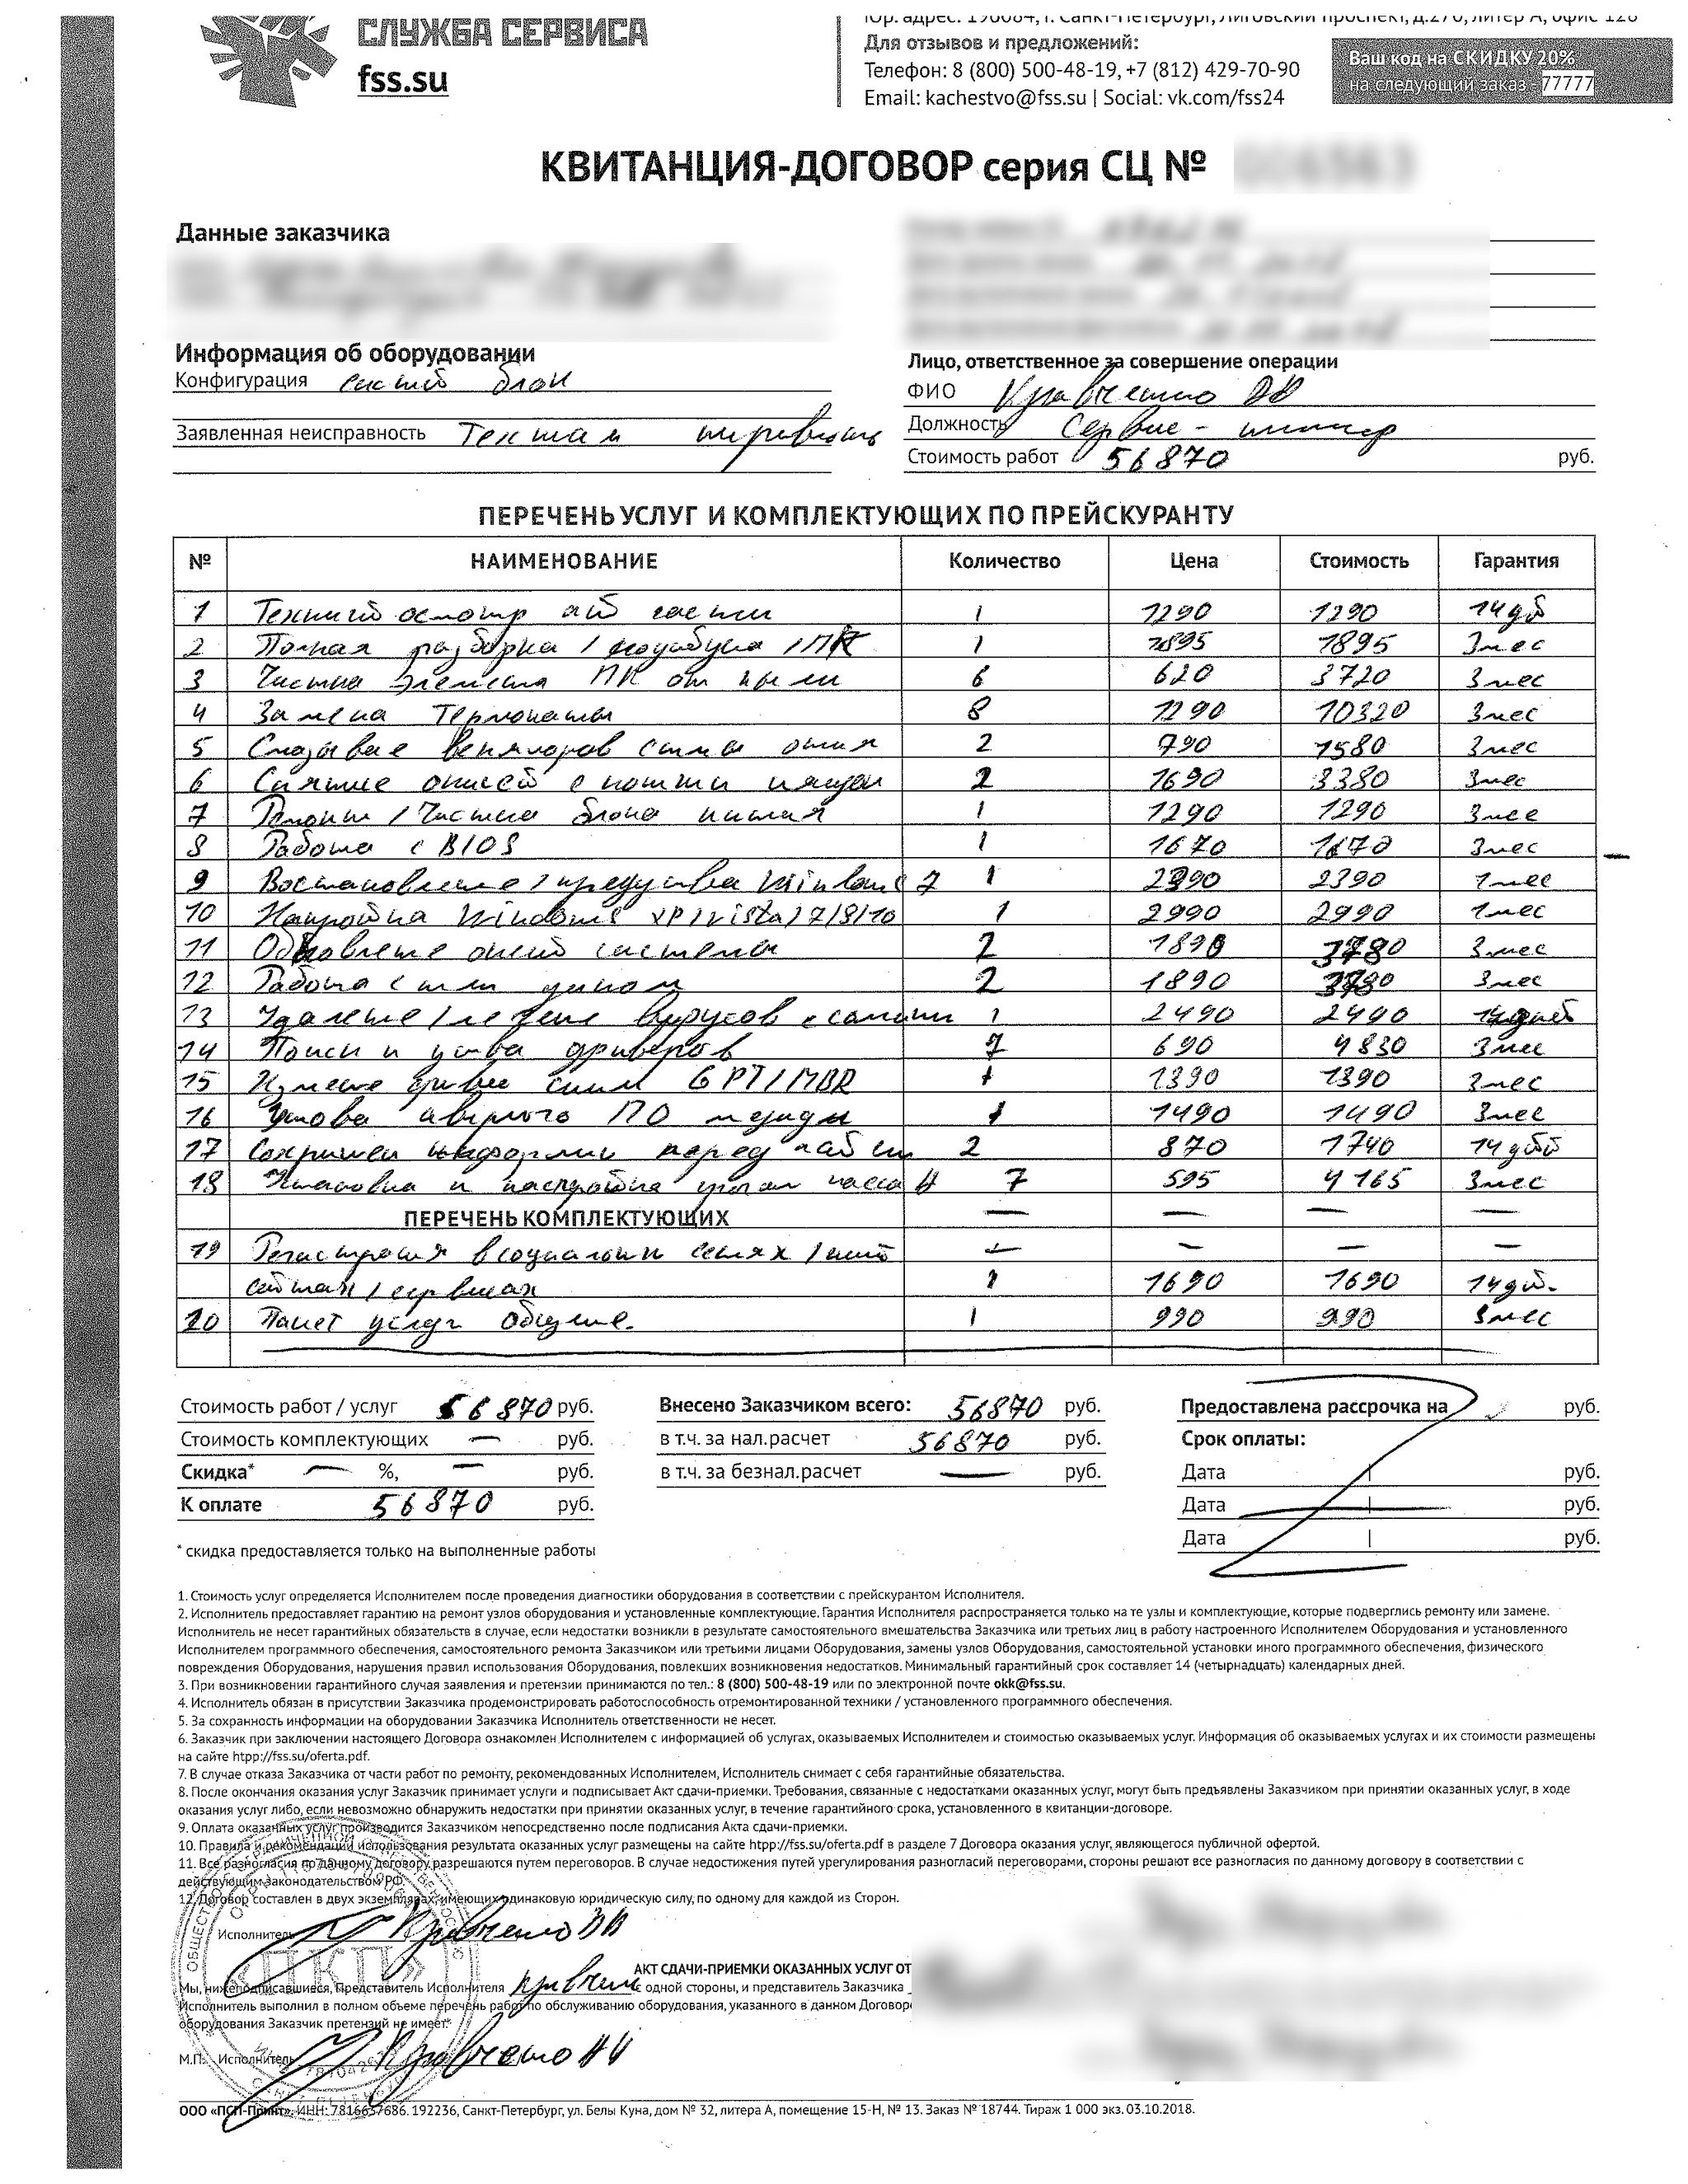 СЛУЖБА СЕРВИСА
fss.su
Юр. адрес: 190084, г. Санкт-Петербург, Лиговский проспект, д.270, литер А, офис 128
Для отзывов и предложений:
Телефон: 8 (800) 500-48-19, +7 (812) 429-70-90
Email: kachestvo@fss.su | Social: vk.com/fss24
Ваш код на СКИДКУ 20%
на следующий заказ - 77777
КВИТАНЦИЯ-ДОГОВОР серия СЦ №
Данные заказчика
Информация об оборудовании
Конфигурация блок
Заявленная неисправность
Лицо, ответственное за совершение операции
ФИО Кравченко
Должность Сервис -
Стоимость работ 56870 руб.
ПЕРЕЧЕНЬ УСЛУГ И КОМПЛЕКТУЮЩИХ ПО ПРЕЙСКУРАНТУ
№ НАИМЕНОВАНИЕ Количество Цена Стоимость Гарантия
1 осмотр части 1 1290 1290
2 Полная разборка / ноутбука / ПК 1 1895 1895 3 мес
3 Чистка ПК от пыли 6 620 3720 3 мес
4 Замена Термопасты 8 1290 10320 3 мес
5 2 790 1580 3 мес
6 2 1690 3380 3 мес
7 Ремонт / Чистка блока 1 1290 1290 3 мес
8 Работа с BIOS 1 1670 1670 3 мес
9 7 1 2390 2390 1 мес
10 Настройка Windows XP/Vista/7/8/10 1 2990 2990 1 мес
11 системы 2 1890 3780 3 мес
12 Работа с 2 1890 3780 3 мес
13 вирусов 1 2490 2490
14 Поиск и драйверов 7 690 4830 3 мес
15 GPT/MBR 1 1390 1390 3 мес
16 ПО 1 1490 1490 3 мес
17 перед 2 870 1740
18 Установка и настройка 7 595 4165 3 мес
ПЕРЕЧЕНЬ КОМПЛЕКТУЮЩИХ — — — —
19 — — — —
1 1690 1690
20 Пакет услуг 1 990 990 3 мес
Стоимость работ / услуг 56870 руб.
Стоимость комплектующих — руб.
Скидка* — %, — руб.
К оплате 56870 руб.
* скидка предоставляется только на выполненные работы
Внесено Заказчиком всего: 56870 руб.
в т.ч. за нал.расчет 56870 руб.
в т.ч. за безнал.расчет — руб.
Предоставлена рассрочка на руб.
Срок оплаты:
Дата | руб.
Дата | руб.
Дата | руб.
1. Стоимость услуг определяется Исполнителем после проведения диагностики оборудования в соответствии с прейскурантом Исполнителя.
2. Исполнитель предоставляет гарантию на ремонт узлов оборудования и установленные комплектующие. Гарантия Исполнителя распространяется только на те узлы и комплектующие, которые подверглись ремонту или замене.
Исполнитель не несет гарантийных обязательств в случае, если недостатки возникли в результате самостоятельного вмешательства Заказчика или третьих лиц в работу настроенного Исполнителем Оборудования и установленного
Исполнителем программного обеспечения, самостоятельного ремонта Заказчиком или третьими лицами Оборудования, замены узлов Оборудования, самостоятельной установки иного программного обеспечения, физического
повреждения Оборудования, нарушения правил использования Оборудования, повлекших возникновения недостатков. Минимальный гарантийный срок составляет 14 (четырнадцать) календарных дней.
3. При возникновении гарантийного случая заявления и претензии принимаются по тел.: 8 (800) 500-48-19 или по электронной почте okk@fss.su.
4. Исполнитель обязан в присутствии Заказчика продемонстрировать работоспособность отремонтированной техники / установленного программного обеспечения.
5. За сохранность информации на оборудовании Заказчика Исполнитель ответственности не несет.
6. Заказчик при заключении настоящего Договора ознакомлен Исполнителем с информацией об услугах, оказываемых Исполнителем и стоимостью оказываемых услуг. Информация об оказываемых услугах и их стоимости размещены
на сайте htpp://fss.su/oferta.pdf.
7. В случае отказа Заказчика от части работ по ремонту, рекомендованных Исполнителем, Исполнитель снимает с себя гарантийные обязательства.
8. После окончания оказания услуг Заказчик принимает услуги и подписывает Акт сдачи-приемки. Требования, связанные с недостатками оказанных услуг, могут быть предъявлены Заказчиком при принятии оказанных услуг, в ходе
оказания услуг либо, если невозможно обнаружить недостатки при принятии оказанных услуг, в течение гарантийного срока, установленного в квитанции-договоре.
9. Оплата оказанных услуг производится Заказчиком непосредственно после подписания Акта сдачи-приемки.
10. Правила и рекомендации использования результата оказанных услуг размещены на сайте htpp://fss.su/oferta.pdf в разделе 7 Договора оказания услуг, являющегося публичной офертой.
11. Все разногласия по данному договору разрешаются путем переговоров. В случае недостижения путей урегулирования разногласий переговорами, стороны решают все разногласия по данному договору в соответствии с
действующим законодательством РФ.
12. Договор составлен в двух экземплярах, имеющих одинаковую юридическую силу, по одному для каждой из Сторон.
Исполнитель Кравченко
АКТ СДАЧИ-ПРИЕМКИ ОКАЗАННЫХ УСЛУГ ОТ
Мы, нижеподписавшиеся, Представитель Исполнителя с одной стороны, и представитель Заказчика
Исполнитель выполнил в полном объеме перечень работ по обслуживанию оборудования, указанного в данном Договоре
оборудования Заказчик претензий не имеет.
М.П. Исполнитель Кравченко
«ПКП»
ООО «ПСП-Принт». ИНН: 7816637686. 192236, Санкт-Петербург, ул. Белы Куна, дом № 32, литера А, помещение 15-Н, № 13. Заказ № 18744. Тираж 1 000 экз. 03.10.2018.